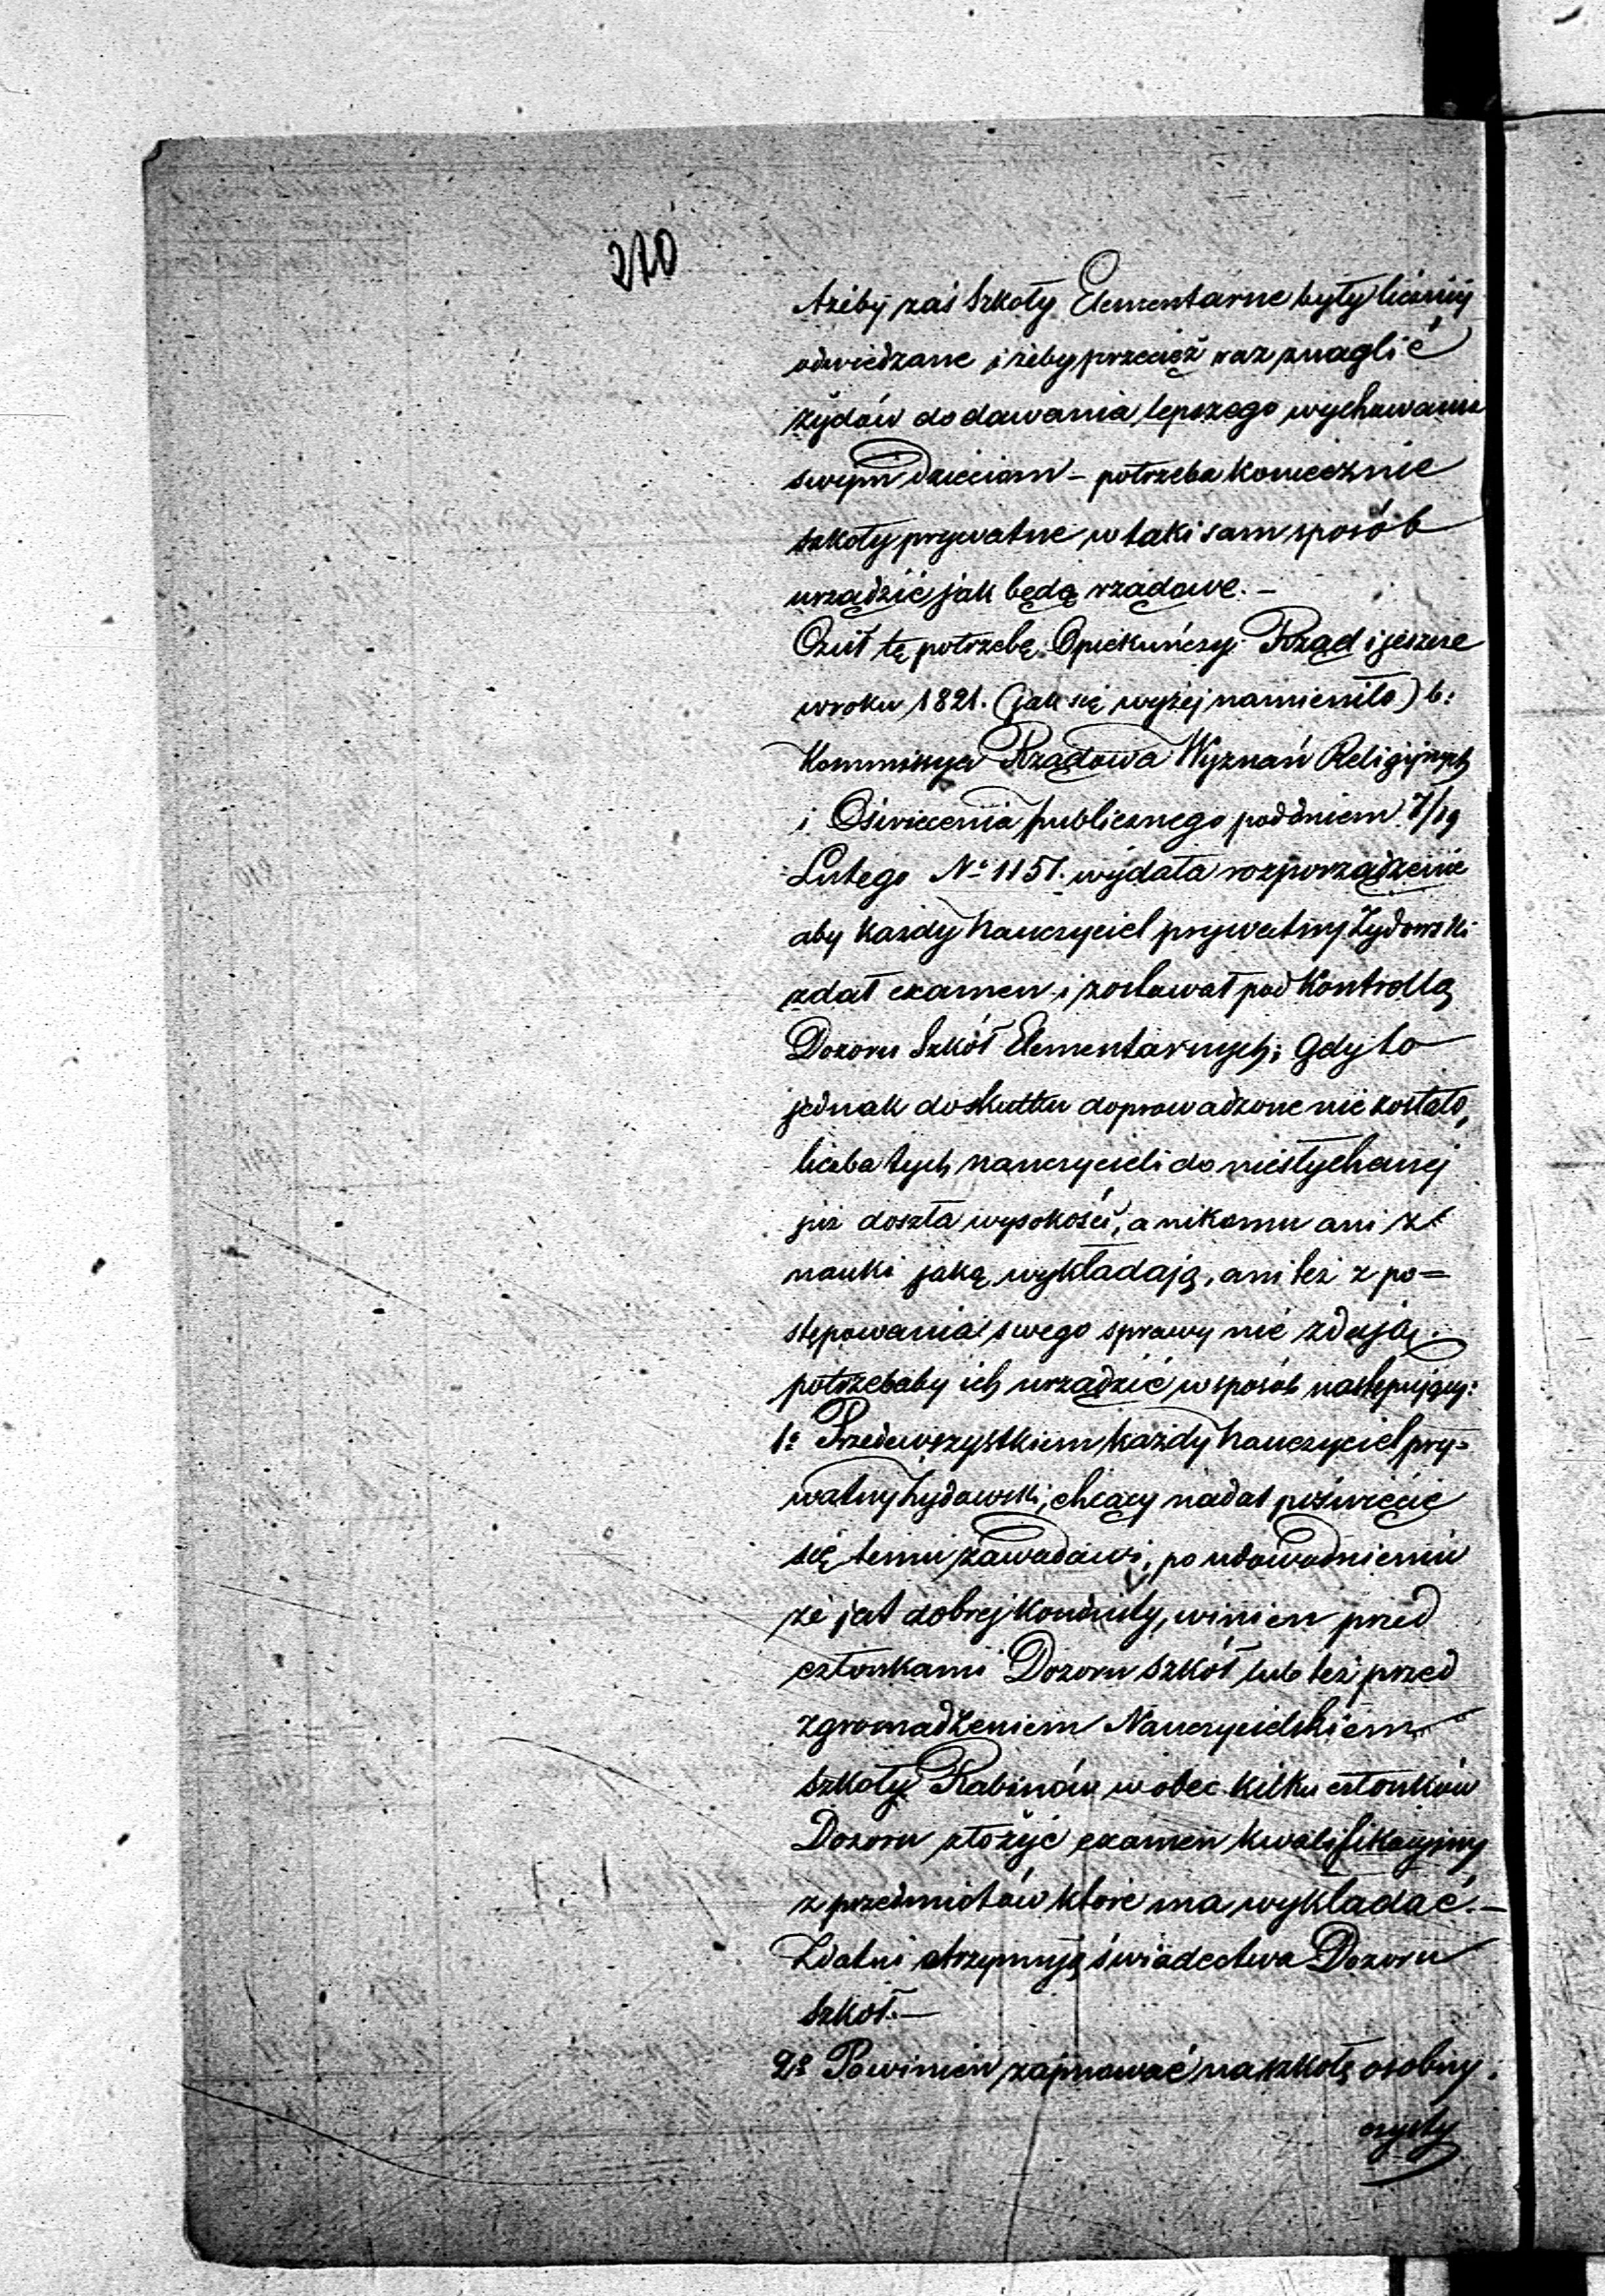 210
Ażeby zaś Szkoły Elementarne były liczniej
odwiedzane i żeby przecięż raz znaglić
żydów do dawania lepszego wychowania
swym dzieciom – potrzeba koniecznie
szkoły prywatne w taki sam sposób
urządzić jak będą rządowe. –
Czuł tę potrzebę Opiekuńczy Rząd i jeszcze
w roku 1821. (jak się wyżej namieniło) b:
Kommissya Rządowa Wyznań Religijnych
i Oświecenia publicznego pod dniem 7/19
Lutego No 1157. wydała rozporządzenie
aby każdy Nauczyciel prywatny Żydowski
zdał examen i zostawał pod Kontrollą
Dozoru Szkół Elementarnych; Gdy to
jednak do skutku doprowadzone nie zostało,
liczba tych nauczycieli do niesłychanej
już doszła wysokości, a nikomu ani z
nauki jaką wykładają, ani też z po=
stępowania swego sprawy nie zdają.
potrzebaby ich urządzić w sposób następujący:
1o Przedewszystkiem każdy Nauczyciel pry=
watny Żydowski, chcący nadal poświęcić
się temu zawodowi, po udowodnieniu
że jest dobrej Konduity, winien przed
członkami Dozoru Szkół lub też przed
zgromadzeniem Nauczycielskiem
Szkoły Rabinów w obec kilku członków
Dozoru złożyć examen kwalifikacyjny
z przedmiotów które ma wykładać. –
Zdatni otrzymują świadectwa Dozoru
Szkół. –
2o Powinien zajmować na szkołę osobny
czysty